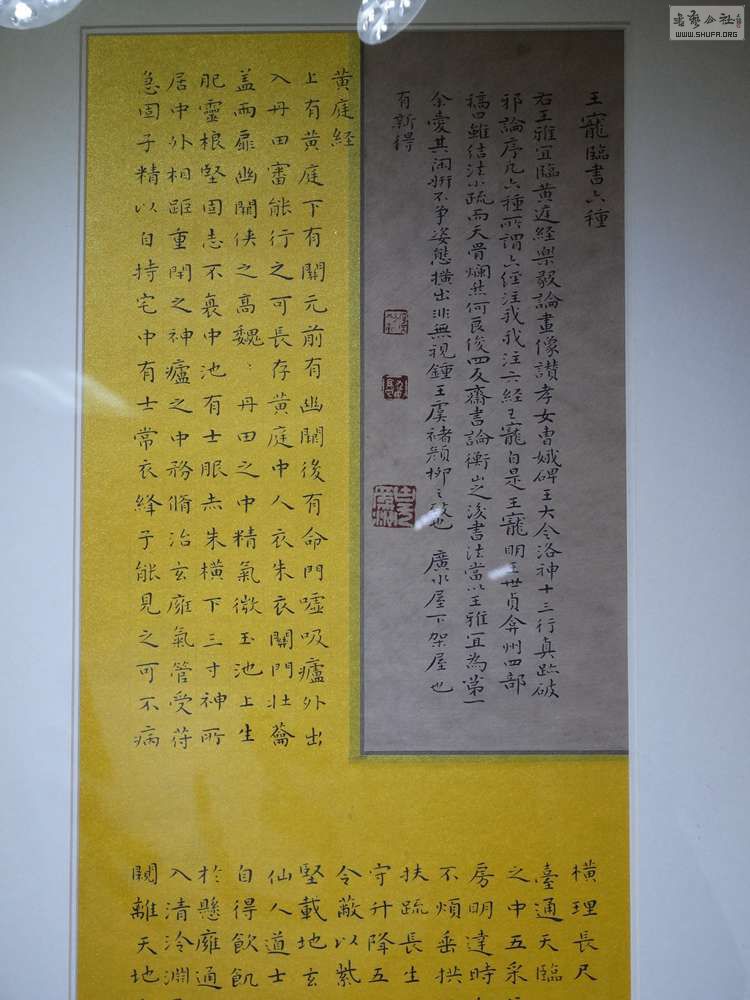 王寵臨書六種
右王雅宜臨黃庭経樂毅論畫像讃孝女曹娥碑王大令洛神十三行真跡破
邪論序凡六種所謂六經注我我注六經王寵自是王寵明王世貞弇州四部
稿曰雖結法小疏而天骨爛然何良俊四友齋書論衡山之後書法當以王雅宜為第一
余愛其閑妍不爭姿態橫出非無視鍾王虞褚顏柳之跡也 廣水屋下架屋也
有新得
黄庭経
上有黄庭下有關元前有幽闕後有命門噓吸廬外出
入丹田審能行之可長存黄庭中人衣朱衣關門壯蘥
盖兩扉幽闕俠之高魏丶丹田之中精氣微玉池上生
肥靈根堅固志不衰中池有士服赤朱橫下三寸神所
居中外相距重閉之神廬之中務脩治玄廱氣管受符
急固子精以自持宅中有士常衣絳子能見之可不病
橫理長尺
臺通天臨
之中五采
房明達時
不煩垂拱
扶疏長生
守升降五
令蔽以紫
堅載地玄
仙人道士
自得飲飢
於懸廱通
入清泠淵
闕離天地
書藝公社
WWW.SHUFA.ORG